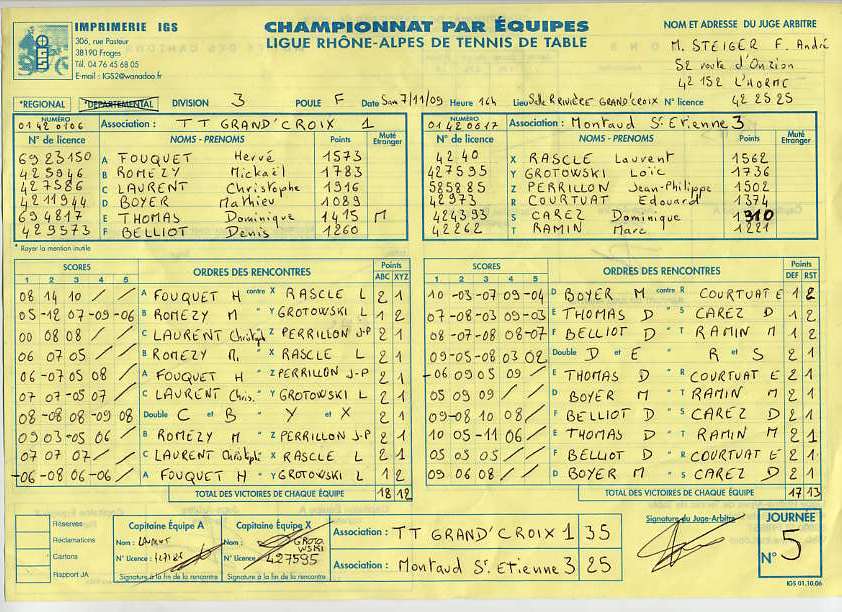 IMPRIMERIE IGS
306, rue Pasteur
38190 Froges
Tél. 04 76 45 68 05
E-mail : IGS2@wanadoo.fr
CHAMPIONNAT PAR ÉQUIPES
LIGUE RHÔNE-ALPES DE TENNIS DE TABLE
NOM ET ADRESSE DU JUGE ARBITRE
M. STEIGER F. André
52 route d'Onzion
42 152 L'HORME
*REGIONAL *DEPARTEMENTAL DIVISION 3 POULE F Date Sam 7/11/09 Heure 16h Lieu Salle RIVIÈRE GRAND'CROIX N° licence 42 25 25
NUMÉRO Association : TT GRAND'CROIX 1
01 42 0106
N° de licence NOMS - PRENOMS Points Muté Etranger
69 23150 A FOUQUET Hervé 1573
425946 B ROMEZY Mickaël 1783
427586 C LAURENT Christophe 1916
4211944 D BOYER Mathieu 1089
694817 E THOMAS Dominique 1415 M
429573 F BELLIOT Denis 1260
* Rayer la mention inutile
NUMÉRO Association : Montaud St Etienne 3
01 42 0617
N° de licence NOMS - PRENOMS Points Muté Etranger
42 40 X RASCLE Laurent 1562
427595 Y GROTOWSKI Loïc 1736
585885 Z PERRILLON Jean-Philippe 1502
42973 R COURTUAT Edouard 1374
424393 S CAREZ Dominique 1310
42262 T RAMIN Marc 1221
SCORES ORDRES DES RENCONTRES Points
1 2 3 4 5 ABC XYZ
08 14 10 / / A FOUQUET H contre X RASCLE L 2 1
05 -12 07 -09 -06 B ROMEZY M " Y GROTOWSKI L 1 2
00 08 08 / / C LAURENT Christoph " Z PERRILLON J-P 2 1
06 07 05 / / B ROMEZY M. " X RASCLE L 2 1
06 -07 05 08 / A FOUQUET H " Z PERRILLON J-P 2 1
07 07 -05 07 / C LAURENT Chris. " Y GROTOWSKI L 2 1
08 -08 08 -09 08 Double C et B " Y et X 2 1
09 03 -05 06 / B ROMEZY M " Z PERRILLON J-P 2 1
07 07 07 / / C LAURENT Christophe " X RASCLE L 2 1
-06 -08 06 -06 / A FOUQUET H " Y GROTOWSKI L 1 2
TOTAL DES VICTOIRES DE CHAQUE ÉQUIPE 18 12
SCORES ORDRES DES RENCONTRES Points
1 2 3 4 5 DEF RST
10 -03 -07 09 -04 D BOYER M contre R COURTUAT E 1 2
07 -08 -03 09 -03 E THOMAS D " S CAREZ D 1 2
08 -07 -08 08 -07 F BELLIOT D " T RAMIN M 1 2
09 -05 -08 03 02 Double D et E " R et S 2 1
-06 09 05 09 / E THOMAS D " R COURTUAT E 2 1
05 09 09 / / D BOYER M " T RAMIN M 2 1
09 -08 10 08 / F BELLIOT D " S CAREZ D 2 1
10 05 -11 06 / E THOMAS D " T RAMIN M 2 1
05 05 05 / / F BELLIOT D " R COURTUAT E 2 1
09 06 08 / / D BOYER M " S CAREZ D 2 1
TOTAL DES VICTOIRES DE CHAQUE ÉQUIPE 17 13
Réserves
Réclamations
Cartons
Rapport JA
Capitaine Équipe A
Nom : LAURENT
N° Licence :
Signature à la fin de la rencontre
Capitaine Équipe X
Nom : GROTOWSKI
N° Licence : 427595
Signature à la fin de la rencontre
Association : TT GRAND'CROIX 1 35
Association : Montaud St Etienne 3 25
Signature du Juge-Arbitre
JOURNÉE
N° 5
IGS 01.10.06